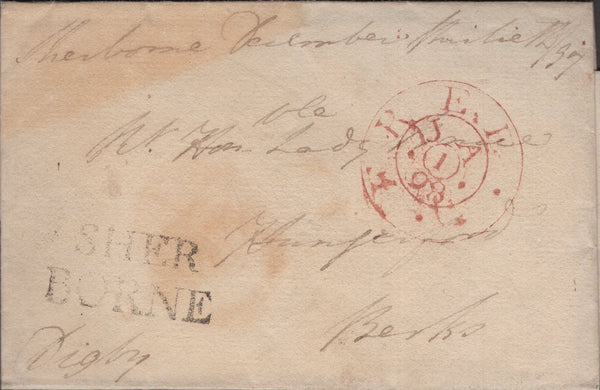 Sherborne December thirtieth 1797
ble
Rt. Hon Lady
F R E E
JA
1
98
SHER
BORNE
Hungerford
Digby
Berks